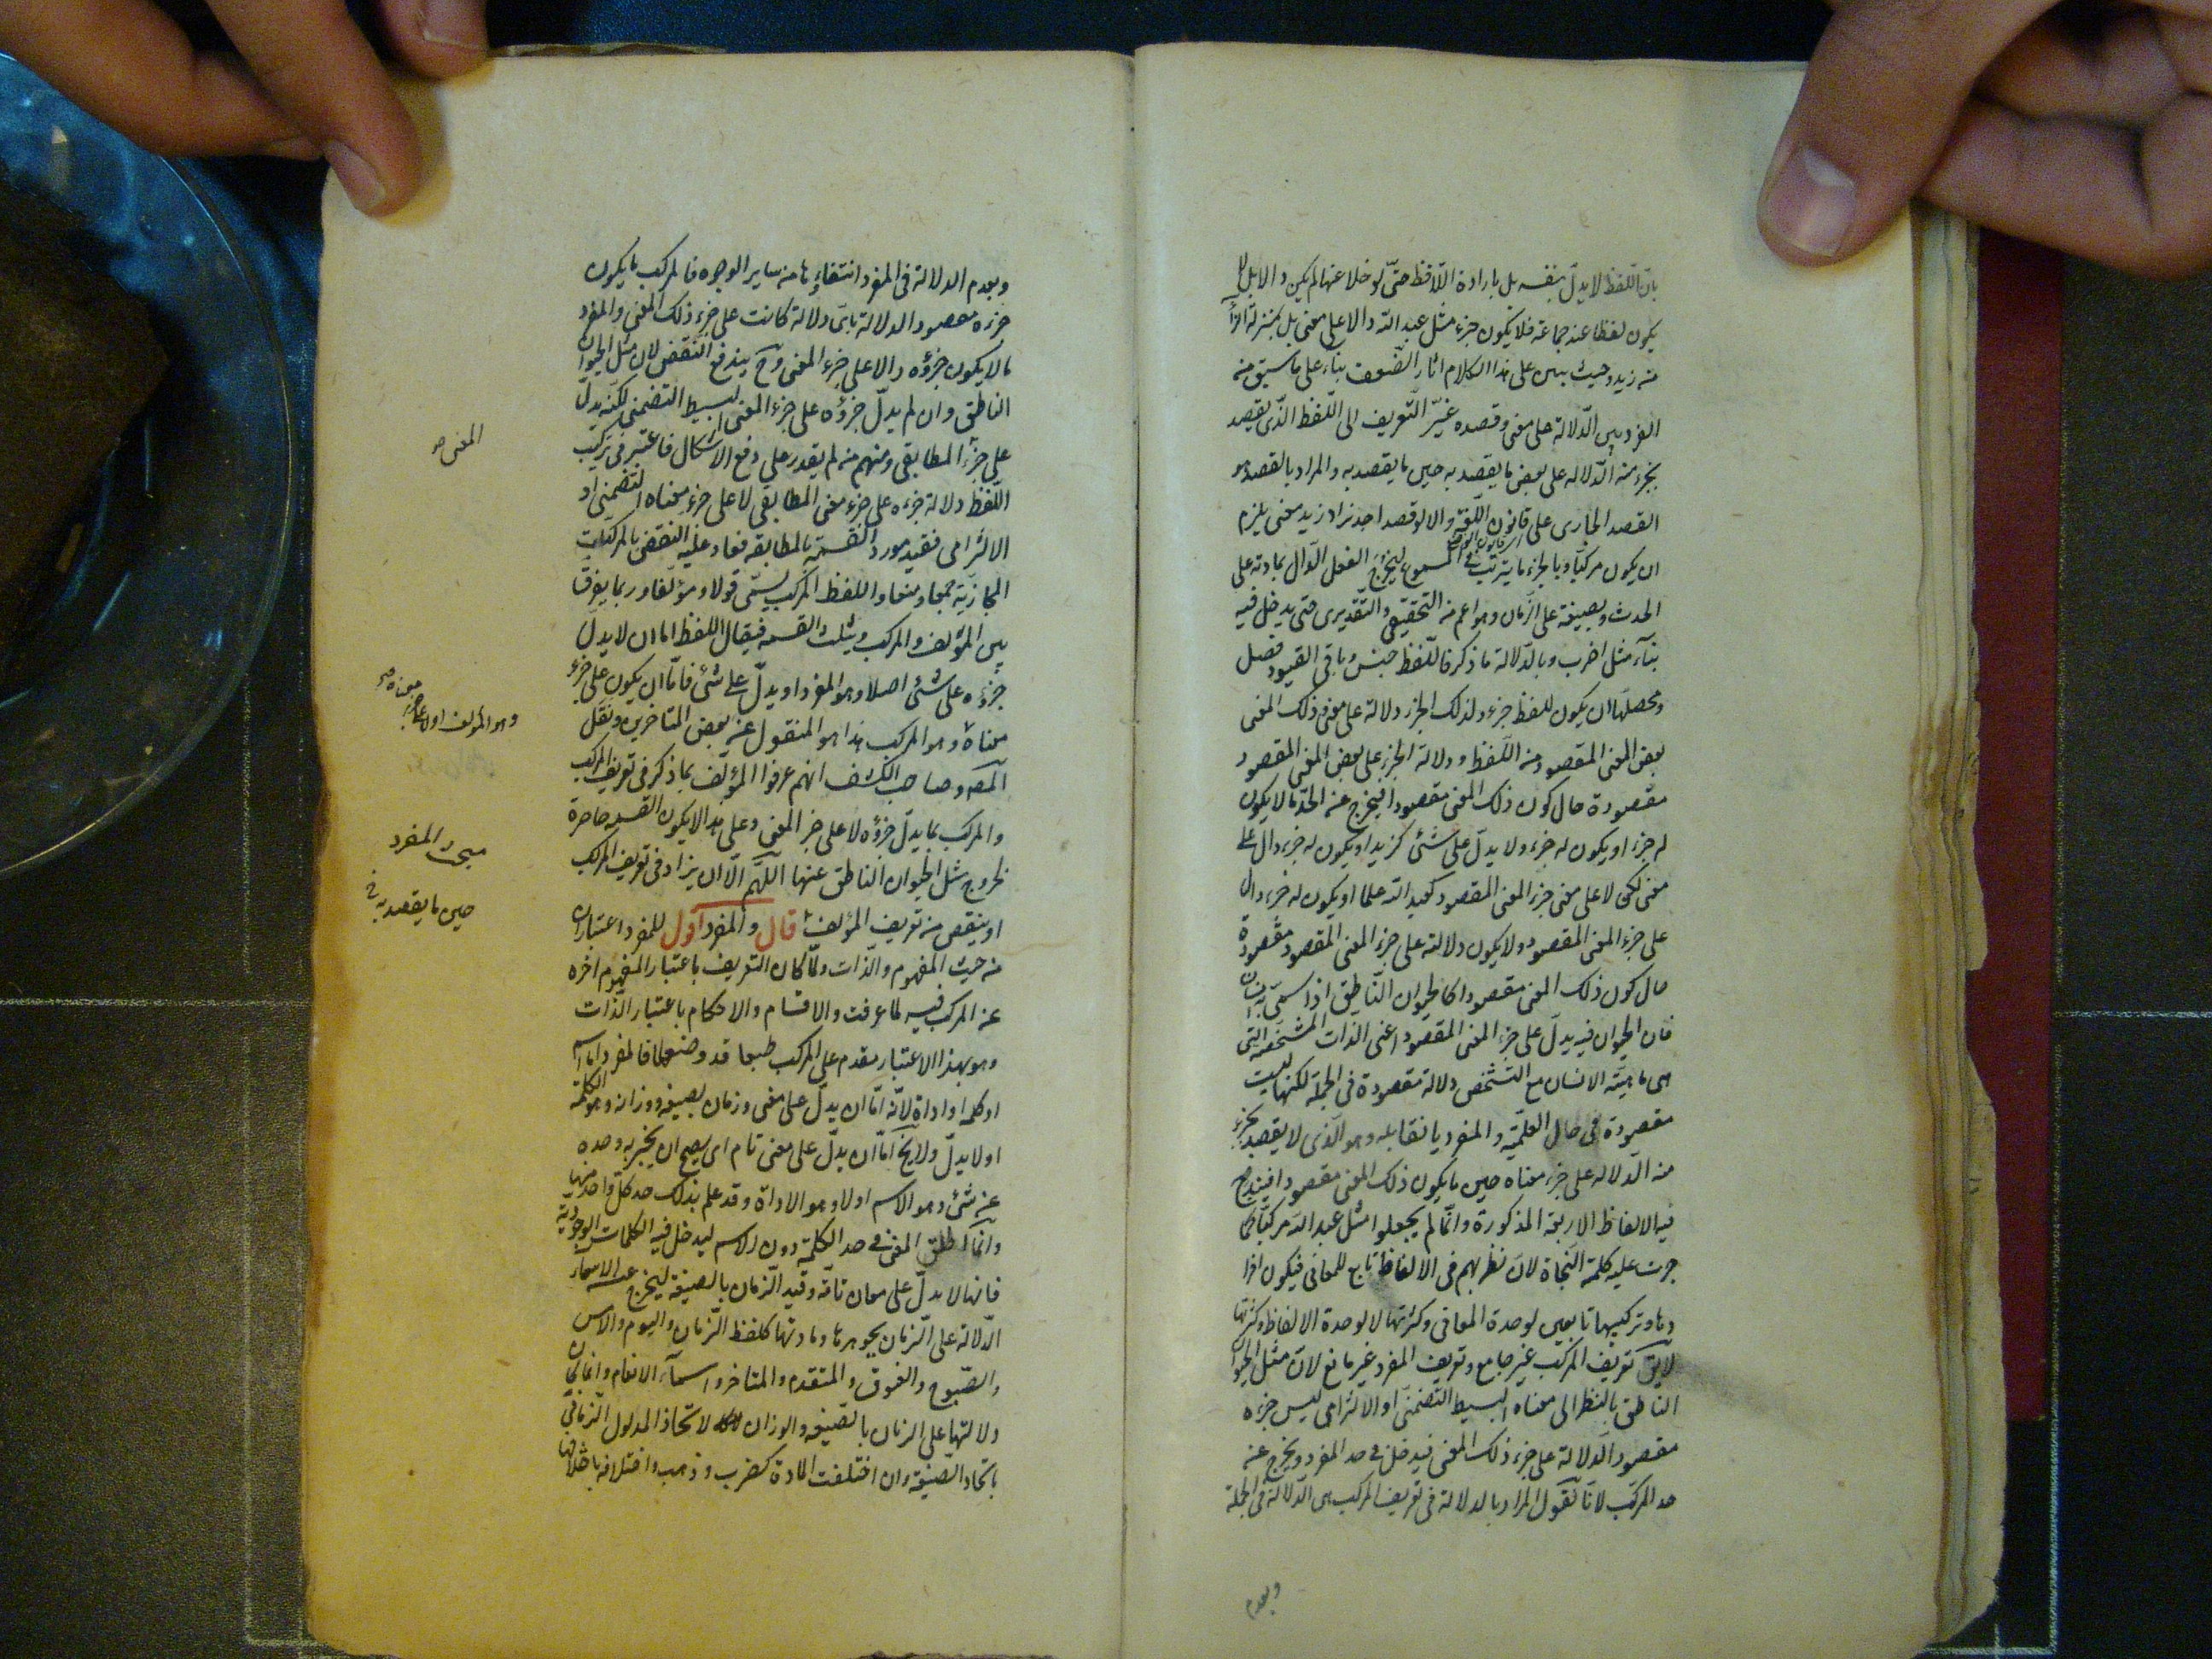 بان اللفظ لا يدل بنفسه بل بارادة اللافظ حتى لو خلا عنها لم يكن دالا بل لا
يكون لفظا عند جماعة فلا يكون جزء مثل عبد الله دالا على معنى بل بمنزلة الزا
من زيد وحيث على هذا الكلام اثار الضعف بناء على ما سبق منه
الفرق بين الدلالة على معنى وقصده غيّر التعريف الى اللفظ الذى يقصد
بجزء منه الدلالة على بعض ما يقصد به حين ما يقصد به والمراد بالقصد هو
القصد الجارى على قانون اللغة والا لو قصد احد بزاء زيد معنى يلزم
ان يكون مركبا وبالجزء ما يترتب فى المسموع ليخرج الفعل الدال بمادته على
الحدث وبصيغته على الزمان وهو اعم من التحقيقى والتقديرى حتى يدخل فيه
مثل اضرب وبالدلالة ما ذكر فاللفظ جنس وباقى القيود فصل
ومحصلها ان يكون للفظ جزء ولذلك الجزء دلالة على معنى ذلك المعنى
بعض المعنى المقصود من اللفظ ودلالة الجزء على بعض المعنى المقصود
مقصودة حال كون ذلك المعنى مقصودا فيخرج عن الحد ما لا يكون
له جزء او يكون له جزء ولا يدل على شئ كزيد او يكون له جزء دال على
معنى لكن لا على معنى جزء المعنى المقصود كعبد الله علما او يكون له جزء دال
على جزء المعنى المقصود ولا يكون دلالته على جزء المعنى المقصود مقصودة
حال كون ذلك المعنى مقصودا كالحيوان الناطق اذا سمى به انسان
فان الحيوان فيه يدل على جزء المعنى المقصود اعنى الذات المشخصة التى
هى ماهية الانسان مع التشخص دلالة مقصودة فى الجملة لكنها ليست
مقصودة فى حال العلمية والمفرد يا نقابله وهو الذى لا يقصد بجزء
منه الدلالة على جزء معناه حين ما يكون ذلك المعنى مقصودا فيندرج
فيه الالفاظ الاربعة المذكورة وانما لم يجعلوا مثل عبد الله مركبا كما
جرت عليه كلمة النحاة لان نظرهم فى الالفاظ تابع للمعانى فيكون افرا
دها وتركيبها تابعين لوحدة المعانى وكثرتها لا لوحدة الالفاظ وكثرتها
لا يق تعريف المركب غير جامع وتعريف المفرد غير مانع لان مثل الحيوان
الناطق بالنظر الى معناه البسيط التضمنى او الالتزامى ليس جزءه
مقصود الدلالة على جزء ذلك المعنى فيدخل فى حد المفرد ويخرج عن
حد المركب لانا نقول المراد بالدلالة فى تعريف المركب هى الدلالة فى الجملة
وبعدم
وبعدم الدلالة فى المفرد انتفاؤها من ساير الوجوه فالمركب ما يكون
جزءه مقصود الدلالة باى دلالة كانت على جزء ذلك المعنى والمفرد
ما لا يكون جزؤه دالا على جزء المعنى وح يندفع النقض لان مثل الحيوان
الناطق وان لم يدل جزؤه على جزء المعنى البسيط التضمنى لكنه يدل
على جزء المطابقى ومنهم من لم يقدر على دفع الاشكال فاعتبر فى تركيب
اللفظ دلالة جزءه على جزء معنى المطابقى لا على جزء معناه التضمنى او
الالتزامى فقيد مورد القسمة بالمطابقة فعاد عليه النقض بالمركبات
المجازية جمعا ومنعا واللفظ المركب يسمى قولا ومؤلفا وربما يفرق
بين المؤلف والمركب ويثلث القسمة فيقال اللفظ اما ان لا يدل
جزءه على شئ اصلا وهو المفرد او يدل على شئ فاما ان يكون على جزء
معناه وهو المركب هذا هو المنقول عن بعض المتاخرين ونقل
المصه وصاحب الكشف انهم عرفوا المؤلف بما ذكر فى تعريف المركب
والمركب بما يدل جزؤه لا على جزء المعنى وعلى هذا لا يكون القسمة حاصرة
لخروج مثل الحيوان الناطق عنها اللهم الا ان يزاد فى تعريف المركب
او ينقص من تعريف المؤلف قال والمفرد اقول للمفرد اعتباران
من حيث المفهوم والذات ولما كان التعريف باعتبار المفهوم اخره
عن المركب فيه لما عرفت والاقسام والاحكام باعتبار الذات
وهو بهذا الاعتبار مقدم على المركب طبعا قدم وضعا فالمفرد اما اسم
او كلمة او اداة لانه اما ان يدل على معنى وزمان بصيغته ووزانه وهو الكلمة
او لا يدل ولا يخ اما ان يدل على معنى تام اى يصح ان يخبر به وحده
عن شئ وهو الاسم او لا وهو الاداة وقد علم بذلك حد كل واحد منها
وانما اطلق المعنى فى حد الكلمة دون الاسم ليدخل فيه الكلمات الوجودية
فانها لا تدل على معان تامة وقيد الزمان بالصيغة ليخرج عنه الاسماء
الدالة على الزمان بجوهرها ومادتها كلفظ الزمان واليوم والامس
والصبوح والغبوق والمتقدم والمتاخر واسماء الافعال وانما كان
دلالتها على الزمان بالصيغة والوزان لاتحاد المدلول الزمانى
باتحاد الصيغة وان اختلفت المادة كضرب وذهب واختلافه باختلافها
المعنى صح
معناه صح
وهو المؤلف او لا على جزء
مبحث المفرد
حين ما يقصد به خ